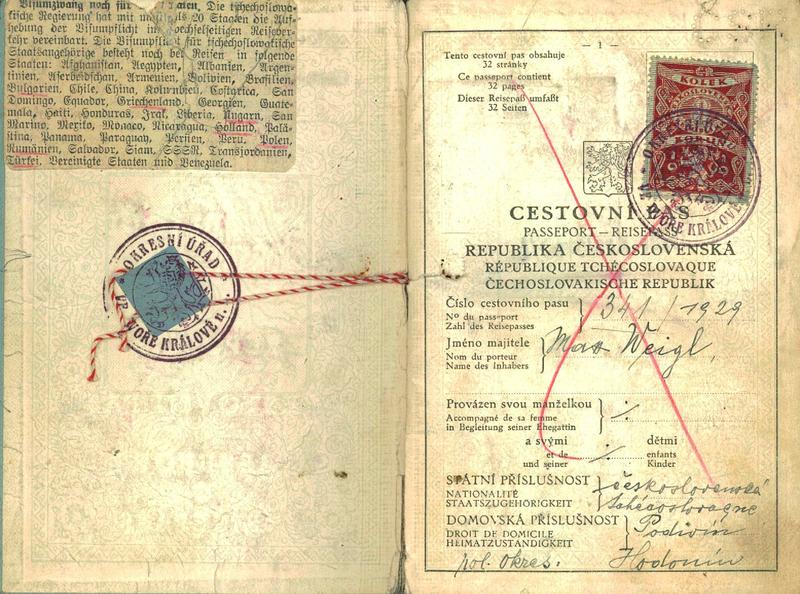 Visumzwang noch für aten. Die tschechoslowa-
kische Regierung hat mit als 20 Staaten die Auf-
hebung der Visumpflicht im wechselseitigen Reisever-
kehr vereinbart. Die Visumpflicht für tschechoslowakische
Staatsangehörige besteht noch bei Reisen in folgende
Staaten: Afghanistan, Aegypten, Albanien, Argen-
tinien, Aserbeidschan, Armenien, Bolivien, Brasilien,
Bulgarien, Chile, China, Kolumbien, Costarica, San
Domingo, Equador, Griechenland, Georgien, Guate-
mala, Haiti, Honduras, Irak, Liberia, Ungarn, San
Marino, Mexiko, Monaco, Nicaragua, Holland, Palä-
stina, Panama, Paraguay, Persien, Peru, Polen,
Rumänien, Salvador, Siam, SSSR, Transjordanien,
Türkei, Vereinigte Staaten und Venezuela.
OKRESNÍ ÚŘAD
VE DVOŘE KRÁLOVÉ n.
— 1 —
Tento cestovní pas obsahuje
32 stránky
Ce passeport contient
32 pages
Dieser Reisepaß umfaßt
32 Seiten
KOLEK
KORUNY
DVOŘE KRÁLOVÉ
CESTOVNÍ PAS
PASSEPORT — REISEPASS
REPUBLIKA ČESKOSLOVENSKÁ
RÉPUBLIQUE TCHÉCOSLOVAQUE
ČECHOSLOVAKISCHE REPUBLIK
Číslo cestovního pasu
No du passeport
Zahl des Reisepasses
341 / 1929
Jméno majitele
Nom du porteur
Name des Inhabers
Max Weigl,
Provázen svou manželkou
Accompagné de sa femme
in Begleitung seiner Ehegattin
a svými dětmi
et de enfants
und seiner Kinder
SPÁTNÍ PŘÍSLUŠNOST
NATIONALITÉ
STAATSZUGEHÖRIGKEIT
československá
tchécoslovaque
DOMOVSKÁ PŘÍSLUŠNOST
DROIT DE DOMICILE
HEIMATZUSTÄNDIGKEIT
Podivín
pol. okres. Hodonín